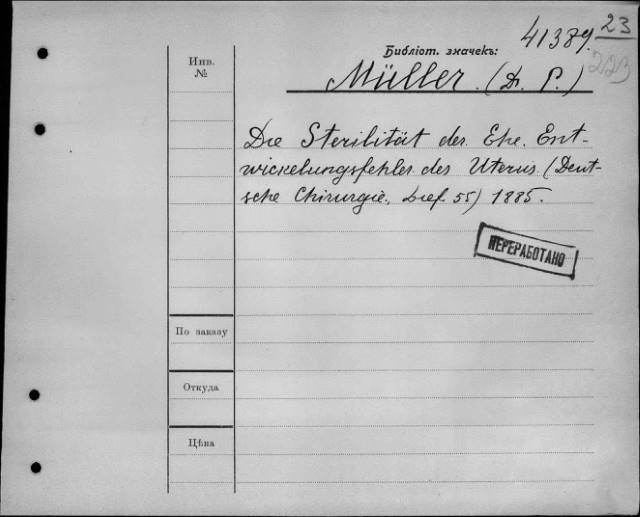 41389 23
223
Библіот. значекъ:
Инв.
№
Müller. (Dr. P.)
Die Sterilität der Ehe. Ent-
wickelungsfehler des Uterus. (Deut-
sche Chirurgie, Lief. 55) 1885.
ПЕРЕРАБОТАНО
По заказу
Откуда
Цѣна